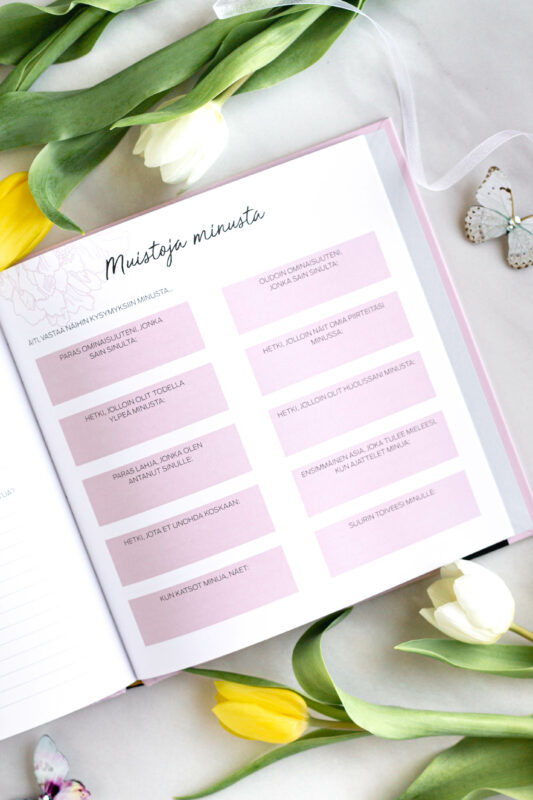 Muistoja minusta
ÄITI, VASTAA NÄIHIN KYSYMYKSIIN MINUSTA...
PARAS OMINAISUUTENI, JONKA
SAIN SINULTA:
HETKI, JOLLOIN OLIT TODELLA
YLPEÄ MINUSTA:
PARAS LAHJA, JONKA OLEN
ANTANUT SINULLE:
HETKI, JOTA ET UNOHDA KOSKAAN:
KUN KATSOT MINUA, NÄET:
OUDOIN OMINAISUUTENI,
JONKA SAIN SINULTA:
HETKI, JOLLOIN NÄIT OMIA PIIRTEITÄSI
MINUSSA:
HETKI, JOLLOIN OLIT HUOLISSANI MINUSTA:
ENSIMMÄINEN ASIA, JOKA TULEE MIELEESI,
KUN AJATTELET MINUA:
SUURIN TOIVEESI MINULLE: